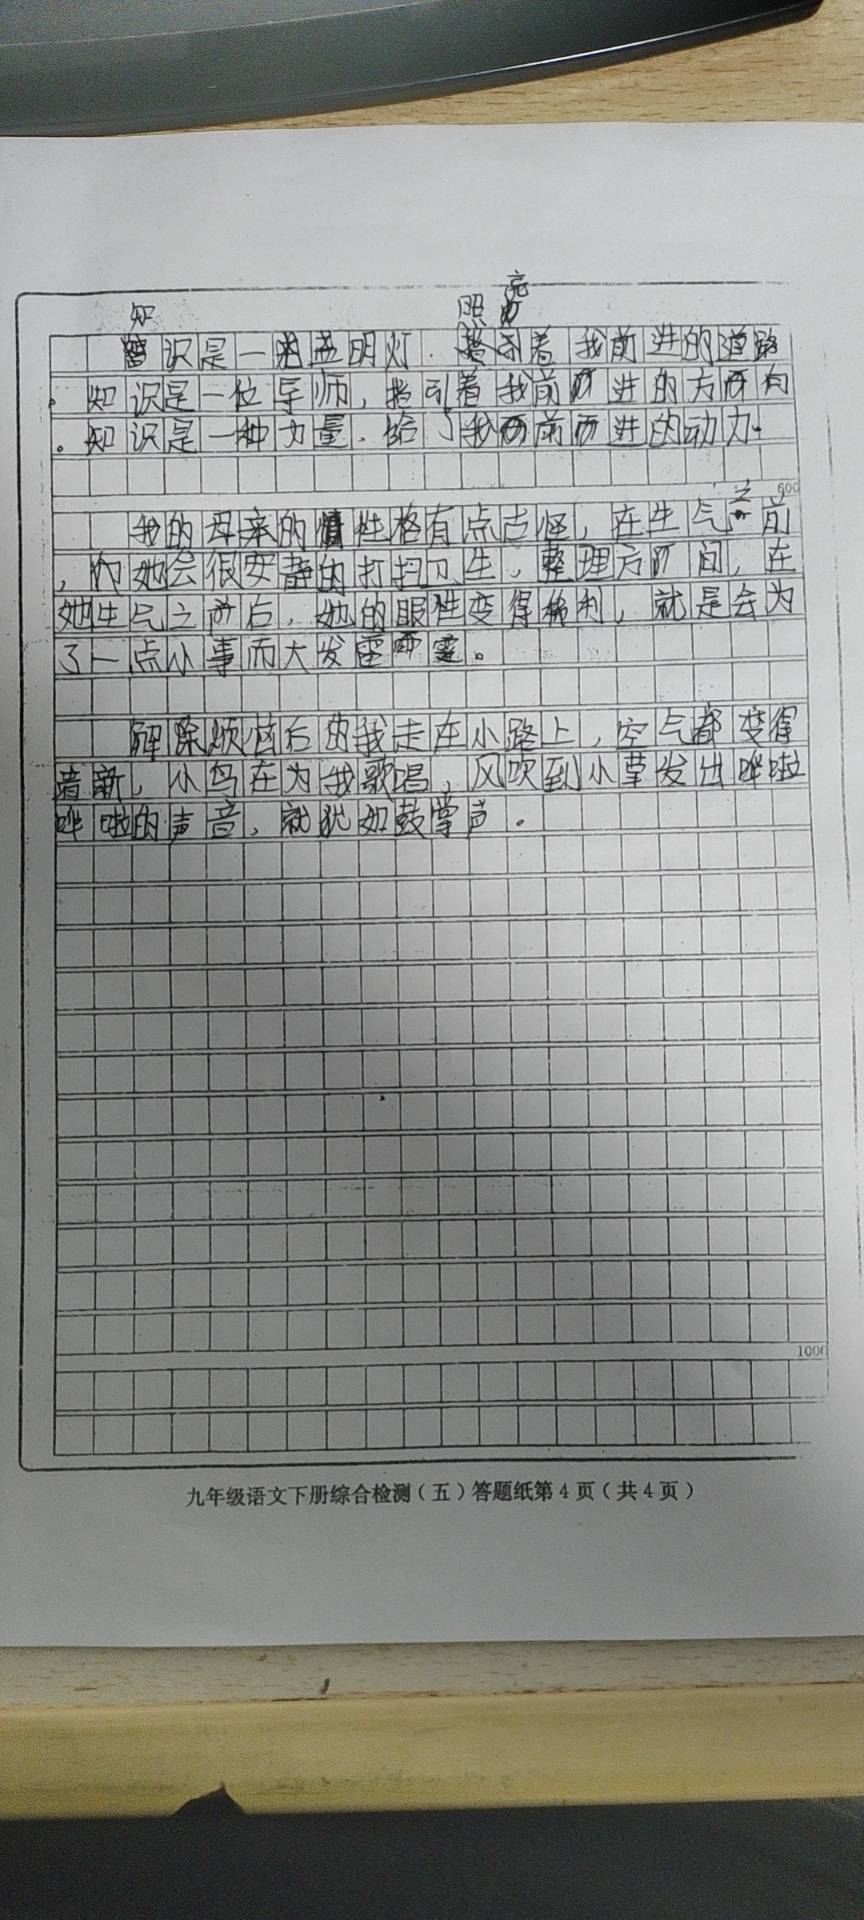 知 照亮
识是一盏明灯，着我前进的道路
。知识是一位导师，指引着我前进的方向
。知识是一种力量，给了我前进的动力。
600
我的母亲的性格有点古怪，在生气之前
，她会很安静的打扫卫生，整理房间，在
她生气之后，她的眼性变得犀利，就是会为
了一点小事而大发雷霆。
解除烦恼后的我走在小路上，空气都变得
清新，小鸟在为我歌唱，风吹到小草发出哗啦
哗啦的声音，就犹如鼓掌声。
1000
九年级语文下册综合检测（五）答题纸第4页（共4页）